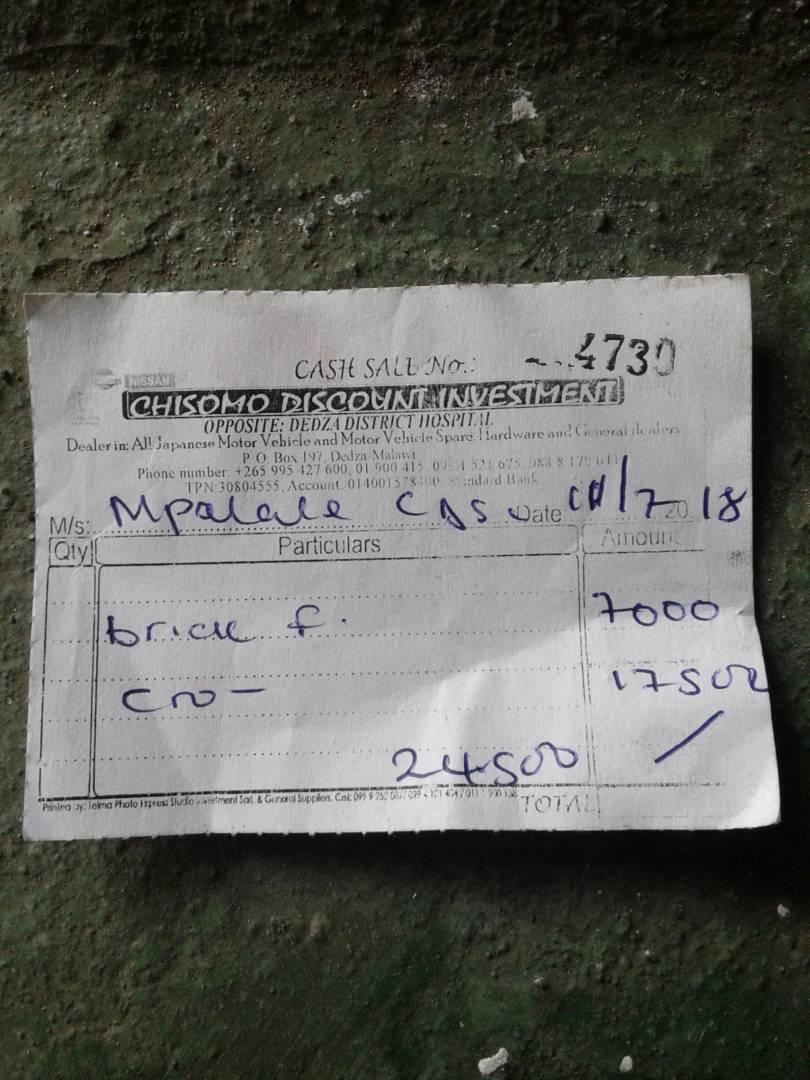 CASH SALE No.: 4730
NISSAN
CHISOMO DISCOUNT INVESTMENT
OPPOSITE: DEDZA DISTRICT HOSPITAL
Dealer in: All Japanese Motor Vehicle and Motor Vehicle Spare, Hardware and General dealers
P.O. Box 197, Dedza-Malawi
Phone number: +265 995 427 600, 01 900 415
TPN:30804555, Account. Standard Bank
M/s: Mpalale CBS Date /7 2018
Qty Particulars Amount
brick f. 7000
cro- 17500
24500
Printed by: Telma Photo Express Studio Investment Sart. & General Suppliers. Cell:
TOTAL